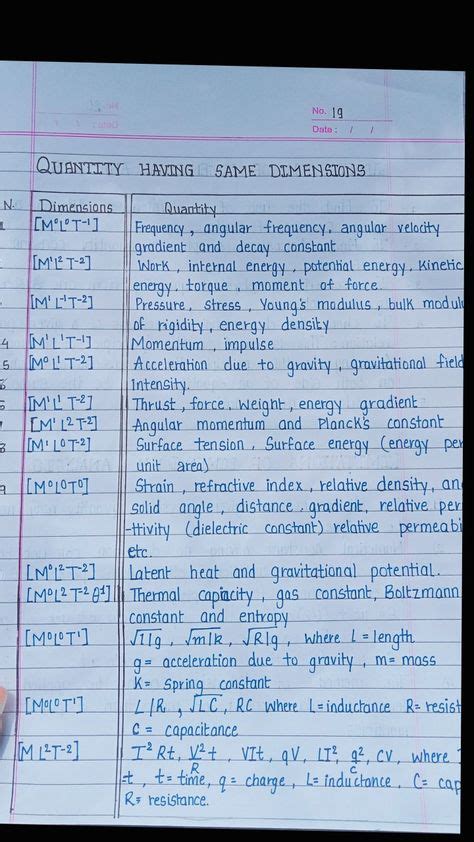 No. 19
Date : / /
QUANTITY HAVING SAME DIMENSIONS
N. Dimensions Quantity
1 [M⁰L⁰T⁻¹] Frequency, angular frequency, angular velocity
gradient and decay constant
[M¹L²T⁻²] Work, internal energy, potential energy, Kinetic
energy, torque, moment of force.
[M¹L⁻¹T⁻²] Pressure, stress, Young's modulus, bulk modul
of rigidity, energy density
4 [M¹L¹T⁻¹] Momentum, impulse
5 [M⁰L¹T⁻²] Acceleration due to gravity, gravitational field
Intensity.
[M¹L¹T⁻²] Thrust, force, weight, energy gradient
[M¹L²T⁻²] Angular momentum and Planck's constant
8 [M¹L⁰T⁻²] Surface tension, Surface energy (energy per
unit area)
9 [M⁰L⁰T⁰] Strain, refractive index, relative density, an
solid angle, distance gradient, relative per
-ttivity (dielectric constant) relative permeabi
etc.
[M⁰L²T⁻²] Latent heat and gravitational potential.
[M⁰L²T⁻²θ¹] Thermal capacity, gas constant, Boltzmann
constant and entropy
[M⁰L⁰T¹] √l/g, √m/k, √R/g, where L = length
g = acceleration due to gravity, m = mass
K = Spring constant
[M⁰L⁰T¹] L/R, √LC, RC where L = inductance R = resist
C = capacitance
[M L²T⁻²] I²Rt, V²/R t, VIt, qV, LI², q²/C, CV, where
t, t = time, q = charge, L = inductance, C = cap
R = resistance.